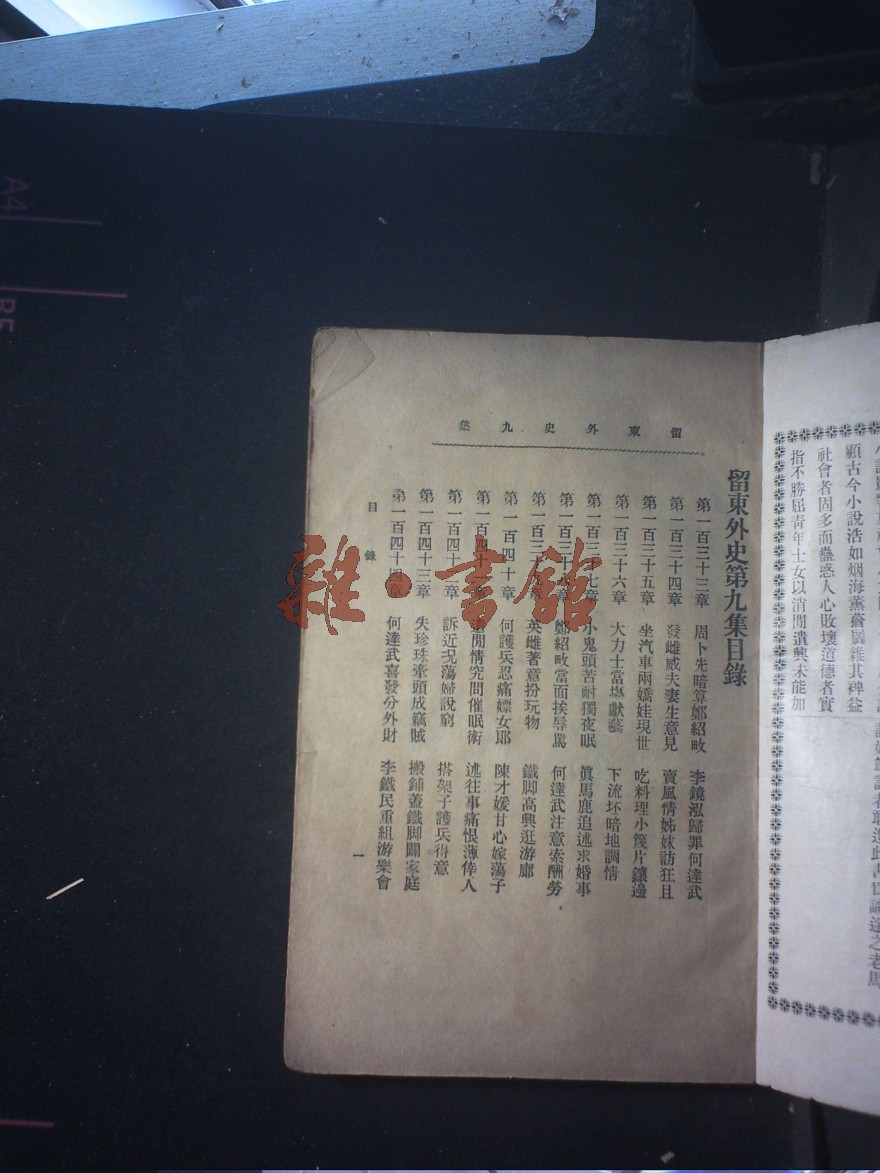 顧古今小說浩如烟海薰蕕厖雜其裨益
社會者固多而蠱惑人心敗壞道德者實
指不勝屈靑年士女以消閒遣興未能加
留東外史第九集目錄
留東外史九集
第一百三十三章 周卜先暗算鄭紹畋 李鏡泓歸罪何達武
第一百三十四章 發雌威夫妻生意見 賣風情姊妹訪狂且
第一百三十五章 坐汽車兩嬌娃現世 吃料理小篾片鑲邊
第一百三十六章 大力士當塲獻藝 下流坯暗地調情
第一百三十七章 小鬼頭苦耐獨夜眠 眞馬鹿追述求婚事
第一百三十八章 鄭紹畋當面挨辱罵 何達武注意索酬勞
第一百三十九章 英雌著意扮玩物 鐵脚高興逛游廊
第一百四十章 何護兵忍痛嫖女郞 陳才媛甘心嫁蕩子
第一百四十一章 遣閒情究問催眠術 述往事痛恨薄倖人
第一百四十二章 訴近況蕩婦說窮 搭架子護兵得意
第一百四十三章 失珍珠牽頭成竊賊 搬鋪蓋鐵脚鬧家庭
第一百四十四章 何達武喜發分外財 李鐵民重組游樂會
目錄
一
雜·書館
A4
B5